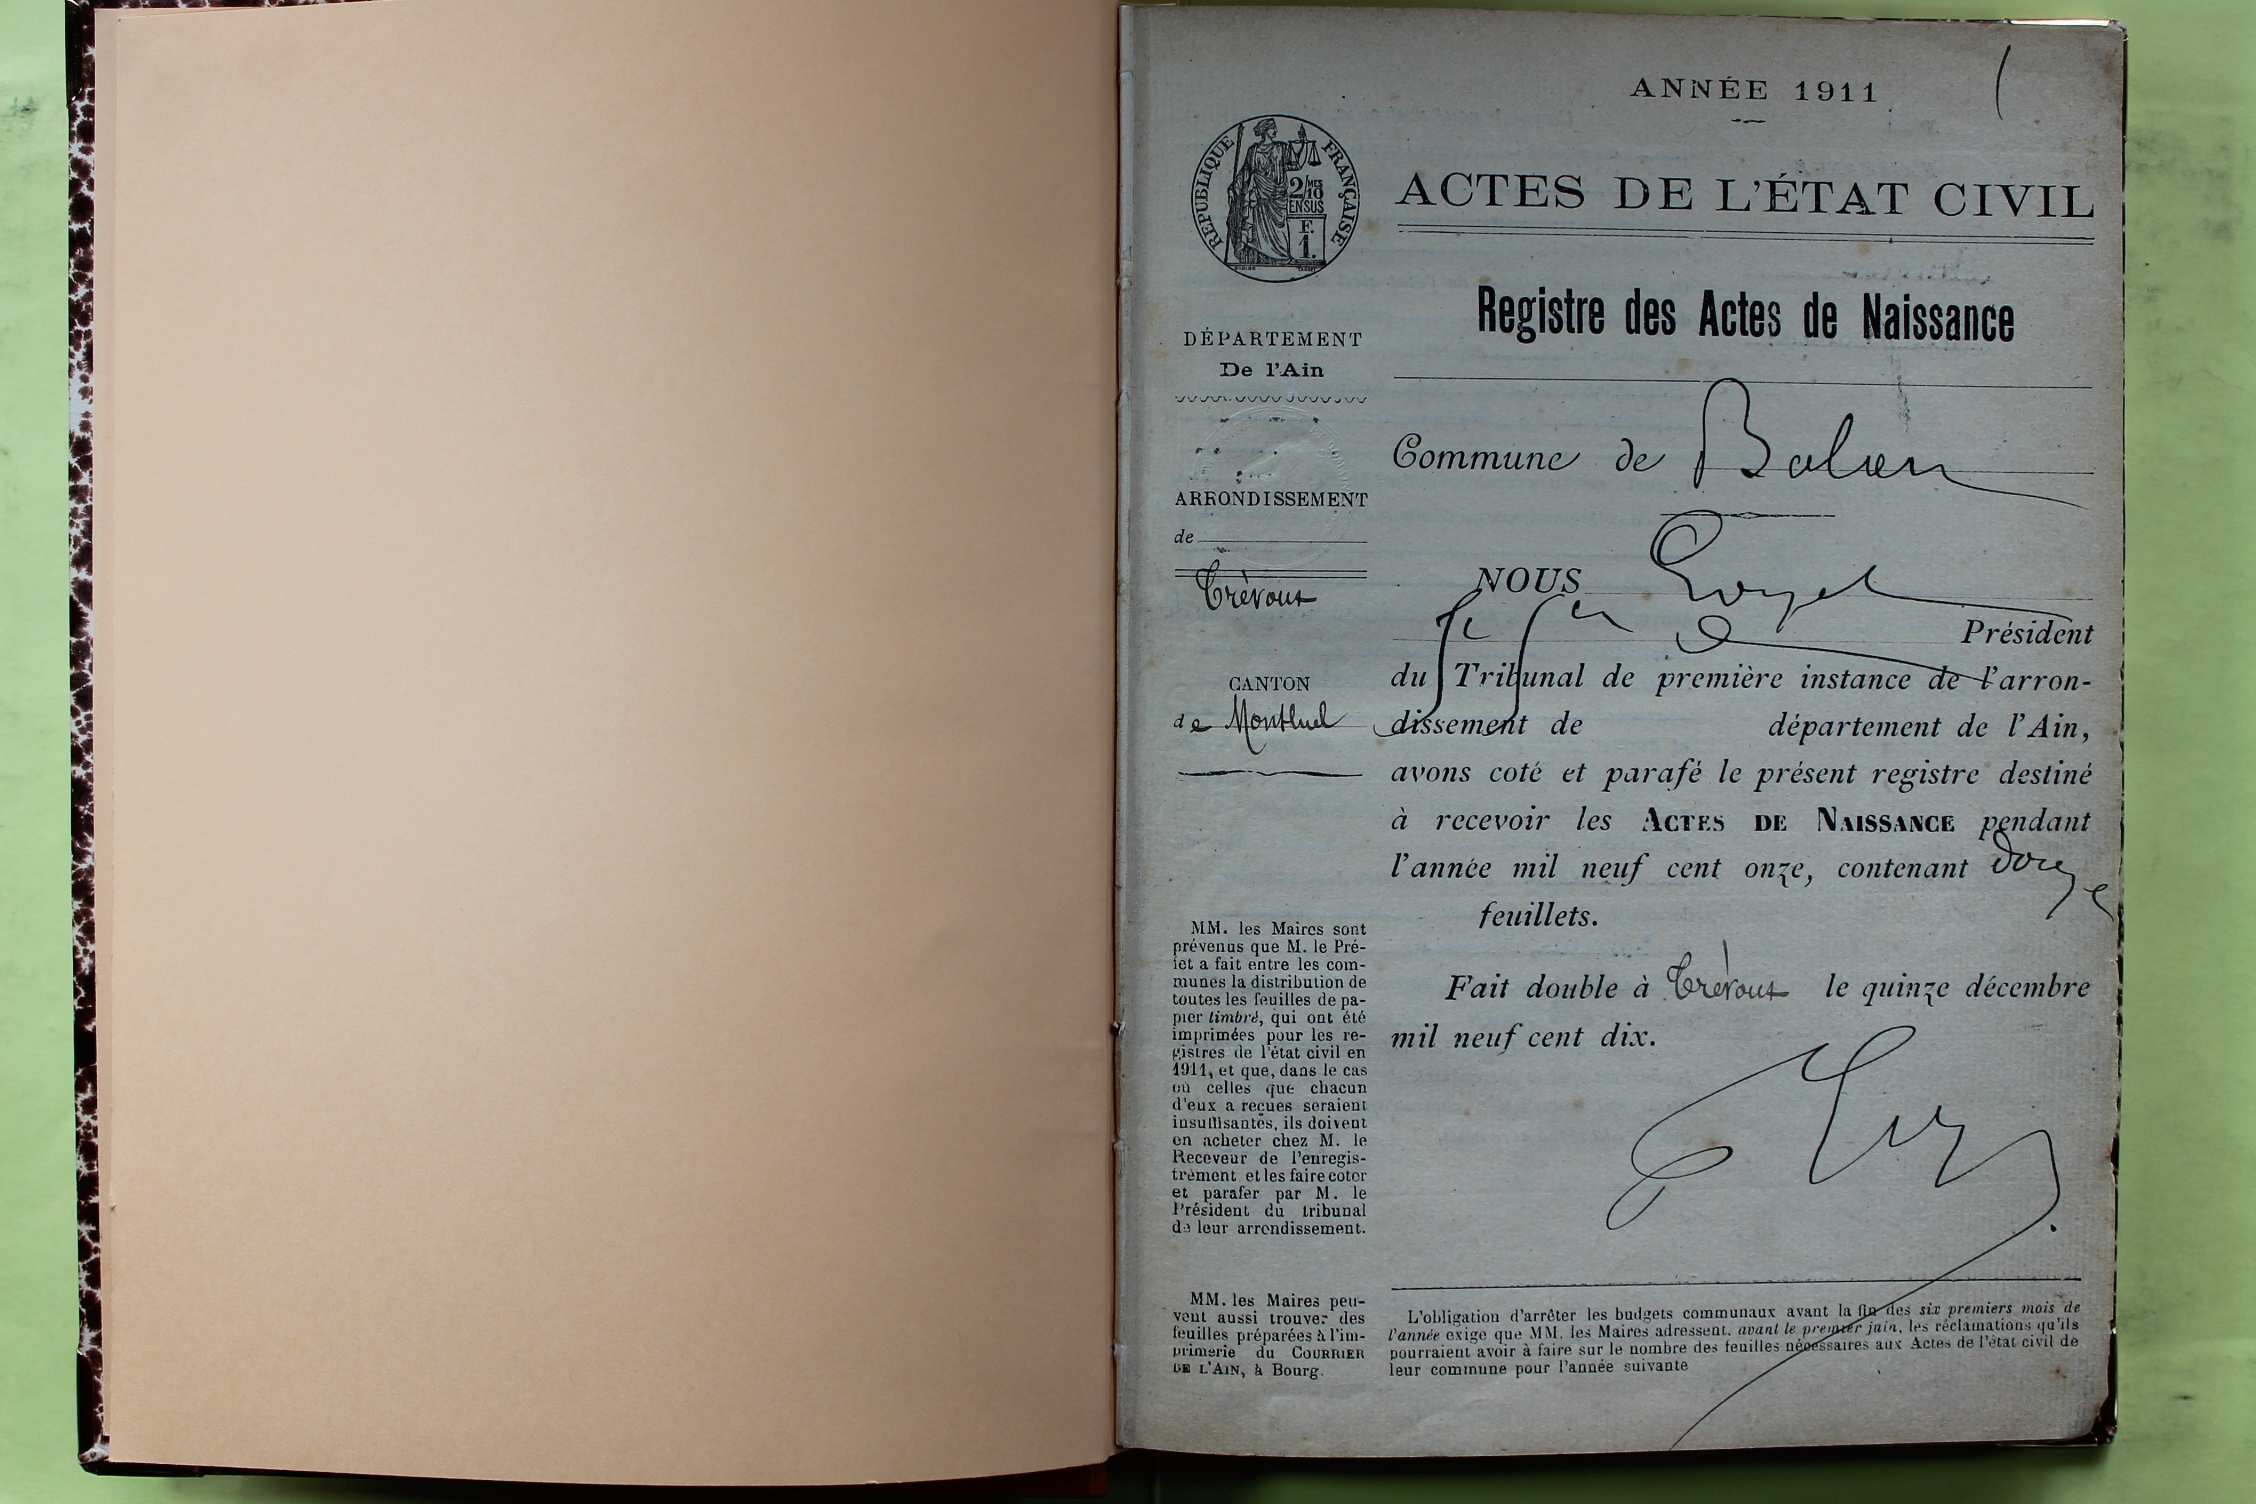 ANNÉE 1911
RÉPUBLIQUE FRANÇAISE
2/10 MES
EN SUS
F.
1.
ACTES DE L'ÉTAT CIVIL
Registre des Actes de Naissance
DÉPARTEMENT
De l'Ain
ARRONDISSEMENT
de
Trévoux
CANTON
de Montluel
Commune de Balan
NOUS
Président
du Tribunal de première instance de l'arron-
dissement de département de l'Ain,
avons coté et parafé le présent registre destiné
à recevoir les ACTES DE NAISSANCE pendant
l'année mil neuf cent onze, contenant douze
feuillets.
Fait double à Trévoux le quinze décembre
mil neuf cent dix.
MM. les Maires sont
prévenus que M. le Pré-
fet a fait entre les com-
munes la distribution de
toutes les feuilles de pa-
pier timbré, qui ont été
imprimées pour les re-
gistres de l'état civil en
1911, et que, dans le cas
où celles que chacun
d'eux a reçues seraient
insuffisantes, ils doivent
en acheter chez M. le
Receveur de l'enregis-
trement et les faire coter
et parafer par M. le
Président du tribunal
de leur arrondissement.
MM. les Maires peu-
vent aussi trouver des
feuilles préparées à l'im-
primerie du COURRIER
DE L'AIN, à Bourg.
L'obligation d'arrêter les budgets communaux avant la fin des six premiers mois de
l'année exige que MM. les Maires adressent, avant le premier juin, les réclamations qu'ils
pourraient avoir à faire sur le nombre des feuilles nécessaires aux Actes de l'état civil de
leur commune pour l'année suivante